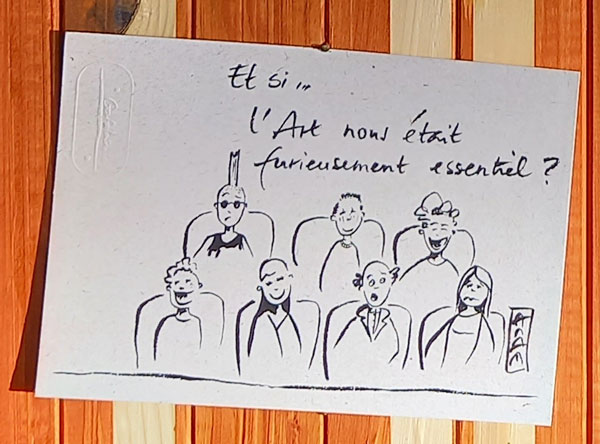 Et si...
l'Art nous était
furieusement essentiel ?